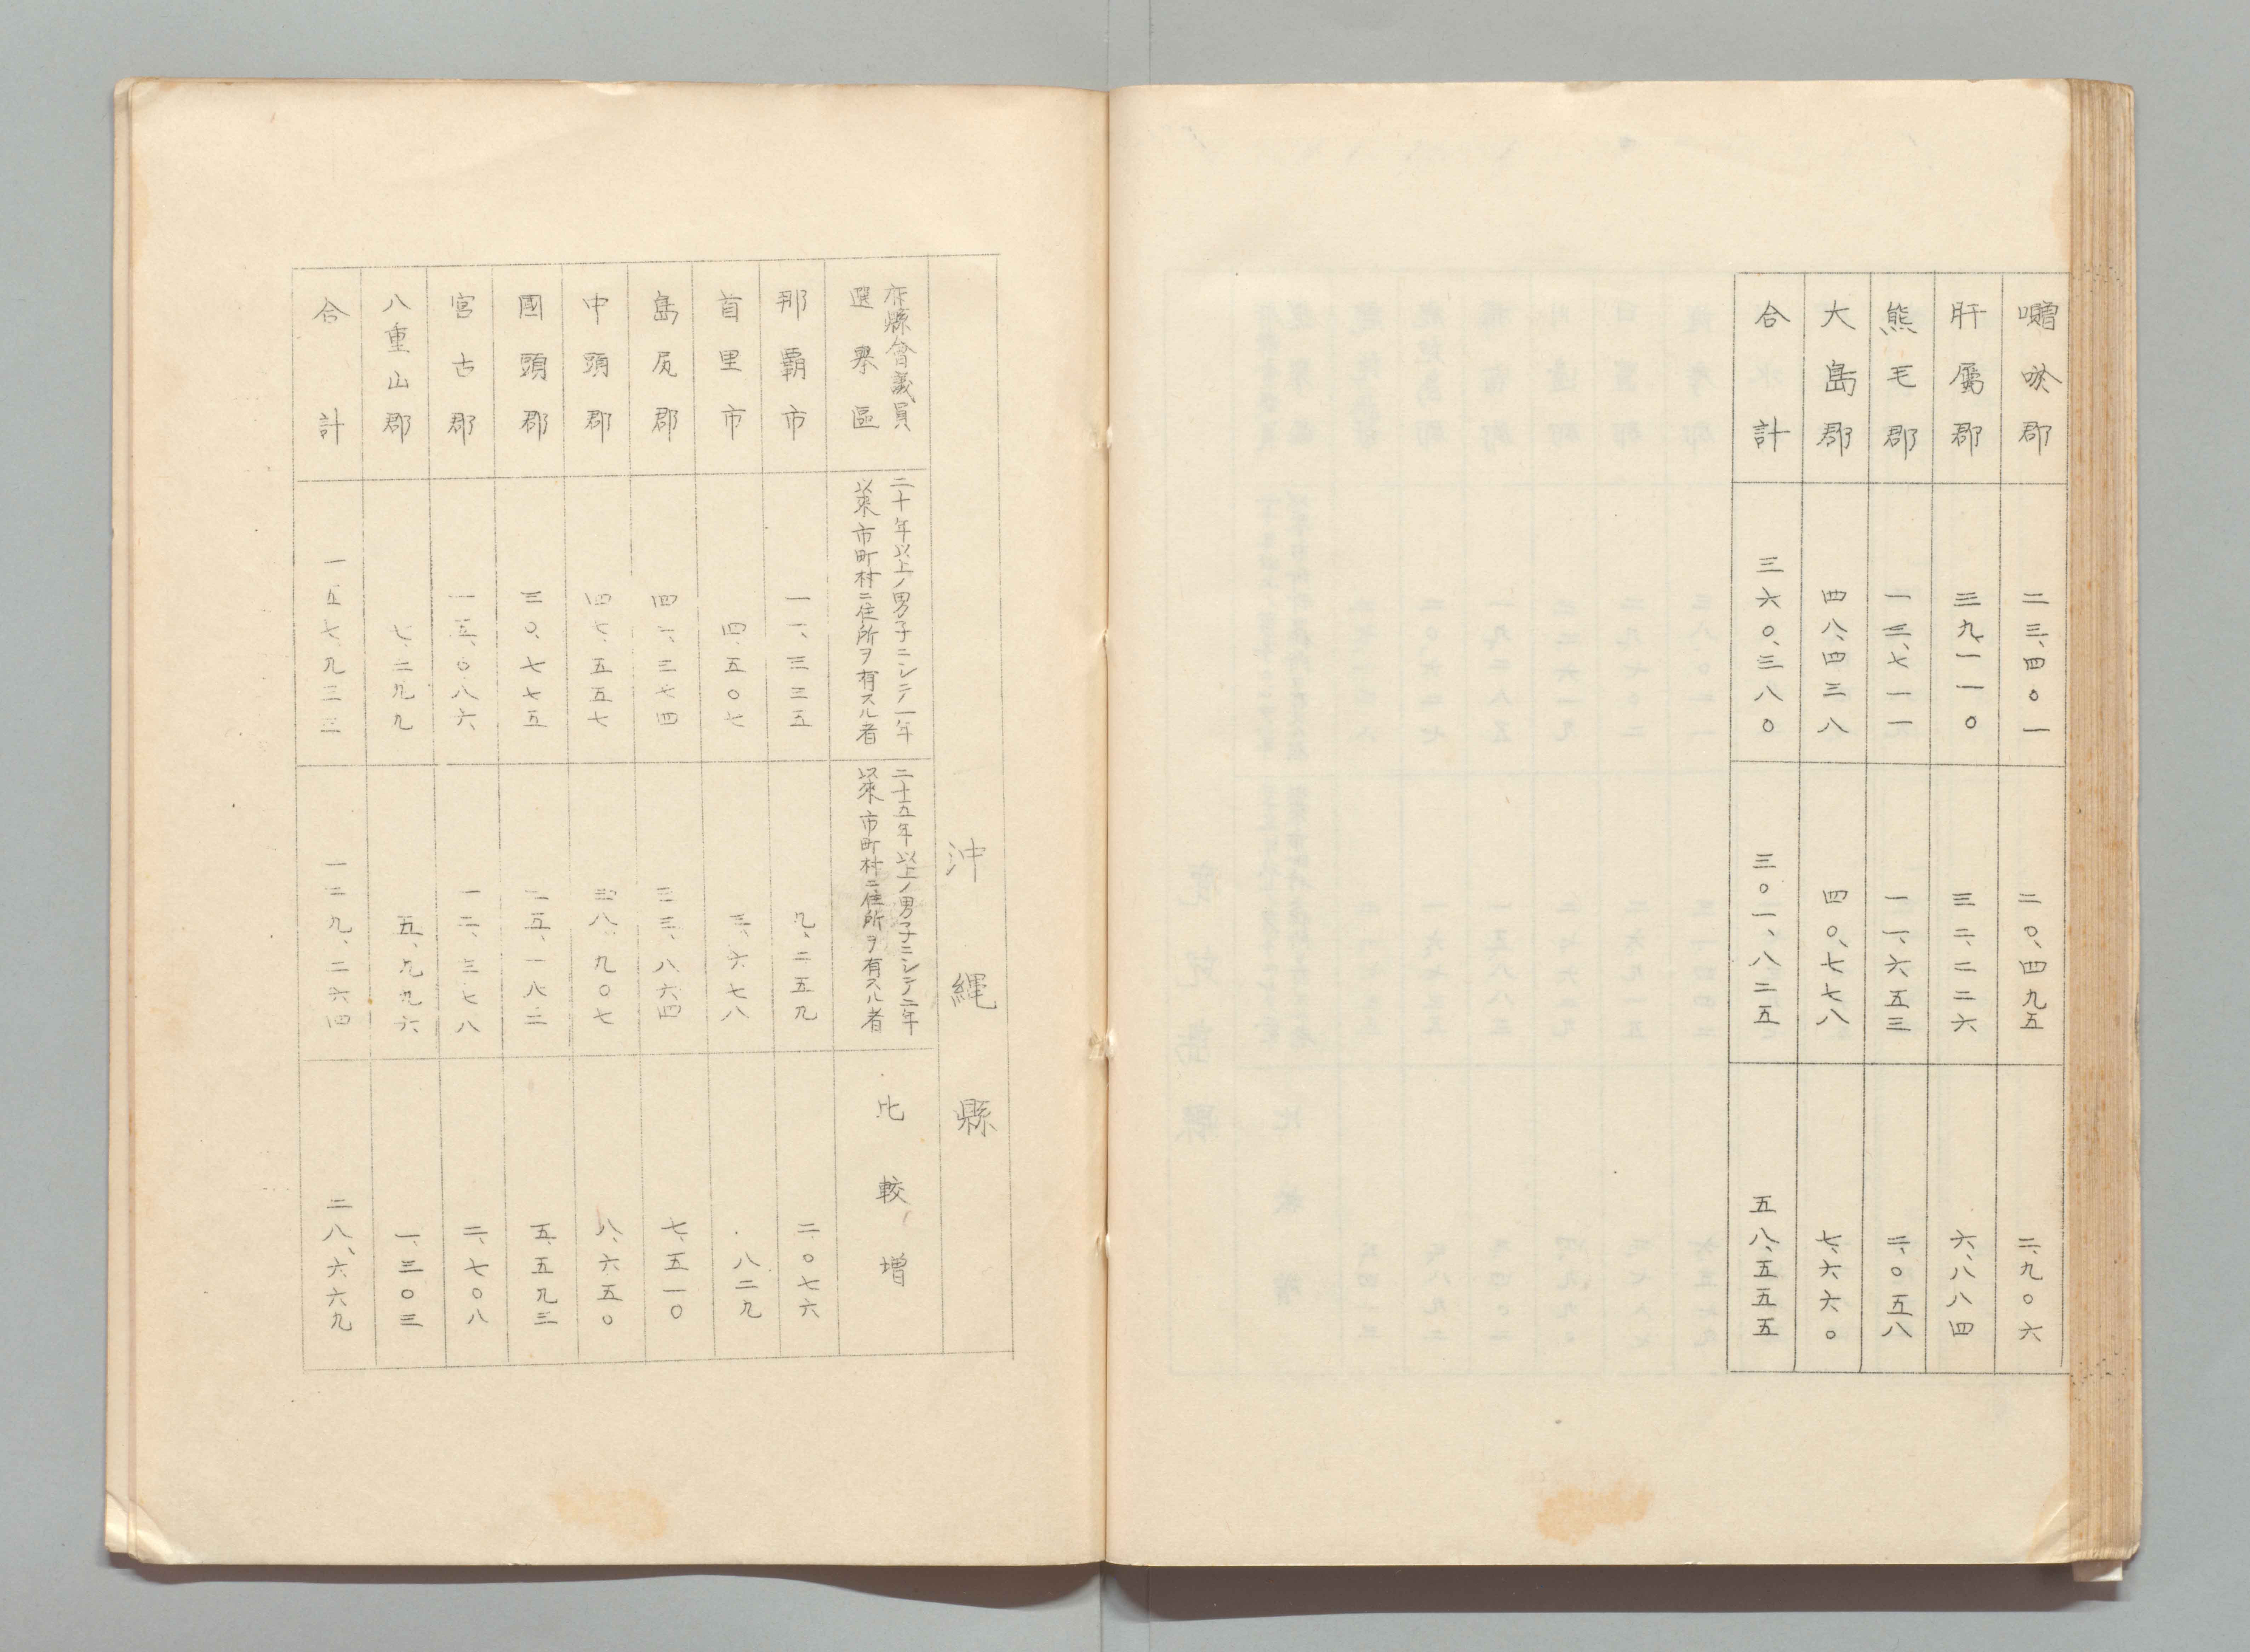 囎唹郡 二三、四〇一 二〇、四九五 二、九〇六
肝属郡 三九、一一〇 三二、二二六 六、八八四
熊毛郡 一三、七一一 一一、六五三 二、〇五八
大島郡 四八、四三八 四〇、七七八 七、六六〇
合計 三六〇、三八〇 三〇一、八二五 五八、五五五
沖縄縣
府縣會議員
選挙區
二十年以上ノ男子ニシテ一年
以來市町村ニ住所ヲ有スル者
二十五年以上ノ男子ニシテ二年
以來市町村ニ住所ヲ有スル者
比較増
那覇市 一一、三三五 九、二五九 二、〇七六
首里市 四、五〇七 三、六七八 八二九
島尻郡 四一、三七四 三三、八六四 七、五一〇
中頭郡 四七、五五七 三八、九〇七 八、六五〇
國頭郡 三〇、七七五 二五、一八二 五、五九三
宮古郡 一五、〇八六 一二、三七八 二、七〇八
八重山郡 七、二九九 五、九九六 一、三〇三
合計 一五七、九三三 一二九、二六四 二八、六六九